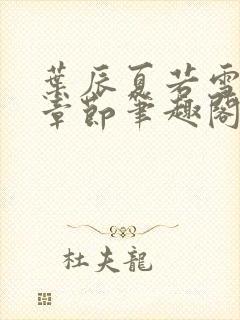 葉辰夏若雪
章節筆趣閣
杜夫龍